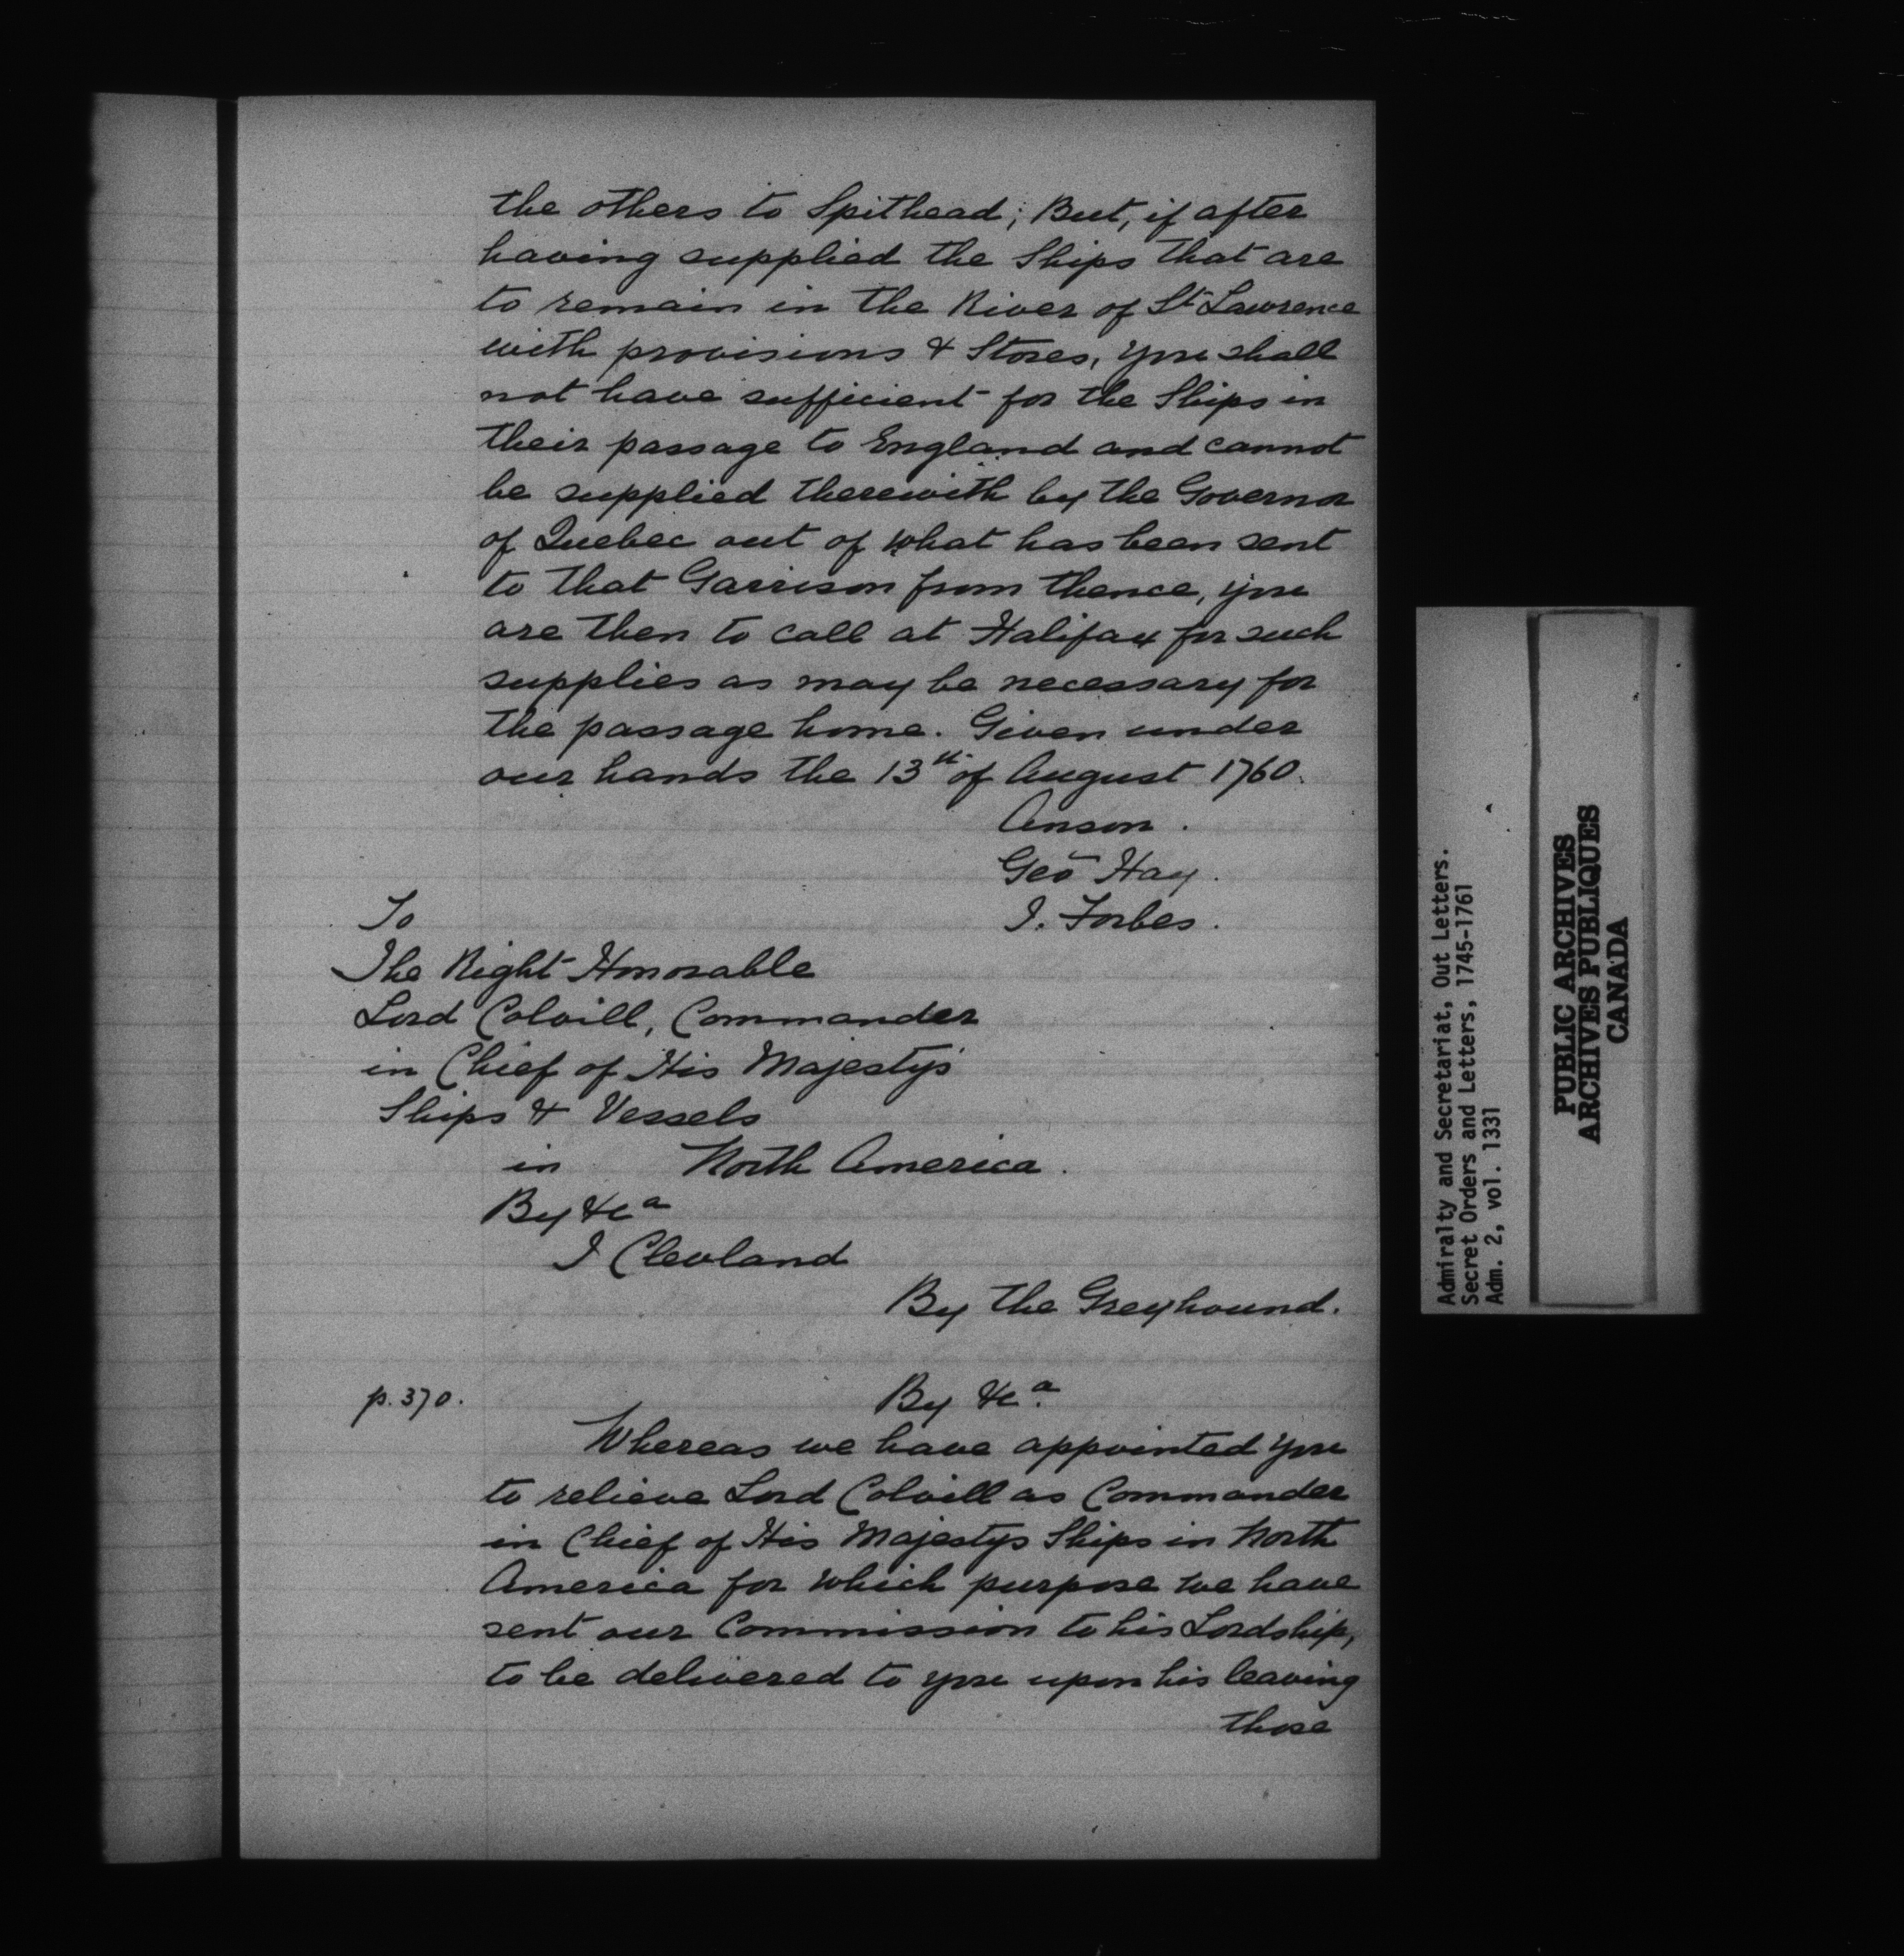 the others to Spithead; But, if after
having supplied the Ships that are
to remain in the River of St Lawrence
with provisions & Stores, you shall
not have sufficient for the Ships in
their passage to England and cannot
be supplied therewith by the Governor
of Quebec out of what has been sent
to that Garrison from thence, you
are then to call at Halifax for such
supplies as may be necessary for
the passage home. Given under
our hands the 13th of August 1760.
Anson.
Geo Hay.
J. Forbes.
To
The Right Honorable
Lord Colvill, Commander
in Chief of His Majestys
Ships & Vessels
in North America.
By &ca
J Clevland
By the Greyhound.
p. 370.
By &ca.
Whereas we have appointed you
to relieve Lord Colvill as Commander
in Chief of His Majestys Ships in North
America for which purpose we have
sent our Commission to his Lordship,
to be delivered to you upon his leaving
those
Admiralty and Secretariat, Out Letters.
Secret Orders and Letters, 1745-1761
Adm. 2, vol. 1331
PUBLIC ARCHIVES
ARCHIVES PUBLIQUES
CANADA